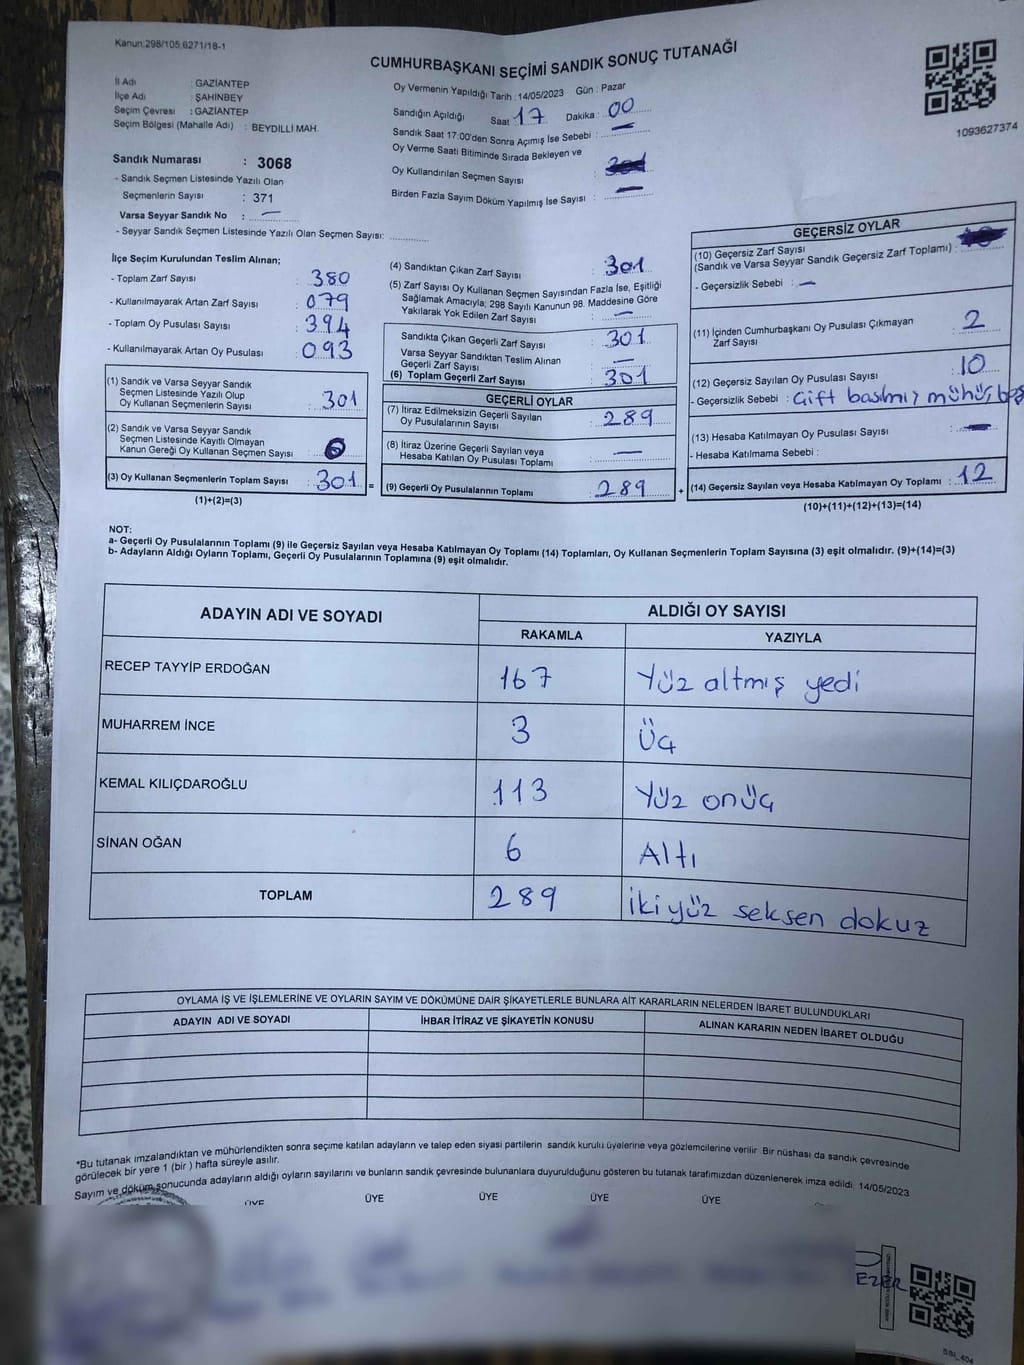 Kanun:298/105,6271/18-1
CUMHURBAŞKANI SEÇİMİ SANDIK SONUÇ TUTANAĞI
İl Adı : GAZİANTEP
İlçe Adı : ŞAHİNBEY
Seçim Çevresi : GAZİANTEP
Seçim Bölgesi (Mahalle Adı) : BEYDİLLİ MAH.
Sandık Numarası : 3068
- Sandık Seçmen Listesinde Yazılı Olan
Seçmenlerin Sayısı : 371
Varsa Seyyar Sandık No : —
- Seyyar Sandık Seçmen Listesinde Yazılı Olan Seçmen Sayısı: ............
Oy Vermenin Yapıldığı Tarih : 14/05/2023 Gün : Pazar
Sandığın Açıldığı Saat : 17 Dakika : 00
Sandık Saat 17:00'den Sonra Açımış İse Sebebi : —
Oy Verme Saati Bitiminde Sırada Bekleyen ve
Oy Kullandırılan Seçmen Sayısı :
Birden Fazla Sayım Döküm Yapılmış İse Sayısı : —
1093627374
İlçe Seçim Kurulundan Teslim Alınan;
- Toplam Zarf Sayısı : 380
- Kullanılmayarak Artan Zarf Sayısı : 079
- Toplam Oy Pusulası Sayısı : 394
- Kullanılmayarak Artan Oy Pusulası : 093
(1) Sandık ve Varsa Seyyar Sandık
Seçmen Listesinde Yazılı Olup
Oy Kullanan Seçmenlerin Sayısı : 301
(2) Sandık ve Varsa Seyyar Sandık
Seçmen Listesinde Kayıtlı Olmayan
Kanun Gereği Oy Kullanan Seçmen Sayısı : 0
(3) Oy Kullanan Seçmenlerin Toplam Sayısı : 301 =
(1)+(2)=(3)
(4) Sandıktan Çıkan Zarf Sayısı : 301
(5) Zarf Sayısı Oy Kullanan Seçmen Sayısından Fazla İse, Eşitliği
Sağlamak Amacıyla; 298 Sayılı Kanunun 98. Maddesine Göre
Yakılarak Yok Edilen Zarf Sayısı : —
Sandıkta Çıkan Geçerli Zarf Sayısı : 301
Varsa Seyyar Sandıktan Teslim Alınan
Geçerli Zarf Sayısı : —
(6) Toplam Geçerli Zarf Sayısı : 301
GEÇERLİ OYLAR
(7) İtiraz Edilmeksizin Geçerli Sayılan
Oy Pusulalarının Sayısı : 289
(8) İtiraz Üzerine Geçerli Sayılan veya
Hesaba Katılan Oy Pusulası Toplamı : —
(9) Geçerli Oy Pusulalarının Toplamı : 289 +
GEÇERSİZ OYLAR
(10) Geçersiz Zarf Sayısı
(Sandık ve Varsa Seyyar Sandık Geçersiz Zarf Toplamı) :
- Geçersizlik Sebebi : —
(11) İçinden Cumhurbaşkanı Oy Pusulası Çıkmayan
Zarf Sayısı : 2
(12) Geçersiz Sayılan Oy Pusulası Sayısı : 10
- Geçersizlik Sebebi : Çift basılmış mühür,boş
(13) Hesaba Katılmayan Oy Pusulası Sayısı : —
- Hesaba Katılmama Sebebi :
(14) Geçersiz Sayılan veya Hesaba Katılmayan Oy Toplamı : 12
(10)+(11)+(12)+(13)=(14)
NOT:
a- Geçerli Oy Pusulalarının Toplamı (9) ile Geçersiz Sayılan veya Hesaba Katılmayan Oy Toplamı (14) Toplamları, Oy Kullanan Seçmenlerin Toplam Sayısına (3) eşit olmalıdır. (9)+(14)=(3)
b- Adayların Aldığı Oyların Toplamı, Geçerli Oy Pusulalarının Toplamına (9) eşit olmalıdır.
ADAYIN ADI VE SOYADI ALDIĞI OY SAYISI
RAKAMLA YAZIYLA
RECEP TAYYİP ERDOĞAN 167 Yüz altmış yedi
MUHARREM İNCE 3 Üç
KEMAL KILIÇDAROĞLU 113 Yüz onüç
SİNAN OĞAN 6 Altı
TOPLAM 289 ikiyüz seksen dokuz
OYLAMA İŞ VE İŞLEMLERİNE VE OYLARIN SAYIM VE DÖKÜMÜNE DAİR ŞİKAYETLERLE BUNLARA AİT KARARLARIN NELERDEN İBARET BULUNDUKLARI
ADAYIN ADI VE SOYADI İHBAR İTİRAZ VE ŞİKAYETİN KONUSU ALINAN KARARIN NEDEN İBARET OLDUĞU
*Bu tutanak imzalandıktan ve mühürlendikten sonra seçime katılan adayların ve talep eden siyasi partilerin sandık kurulu üyelerine veya gözlemcilerine verilir. Bir nüshası da sandık çevresinde
görülecek bir yere 1 (bir) hafta süreyle asılır.
Sayım ve döküm sonucunda adayların aldığı oyların sayılarını ve bunların sandık çevresinde bulunanlara duyurulduğunu gösteren bu tutanak tarafımızdan düzenlenerek imza edildi. 14/05/2023
ÜYE ÜYE ÜYE ÜYE ÜYE
EZER